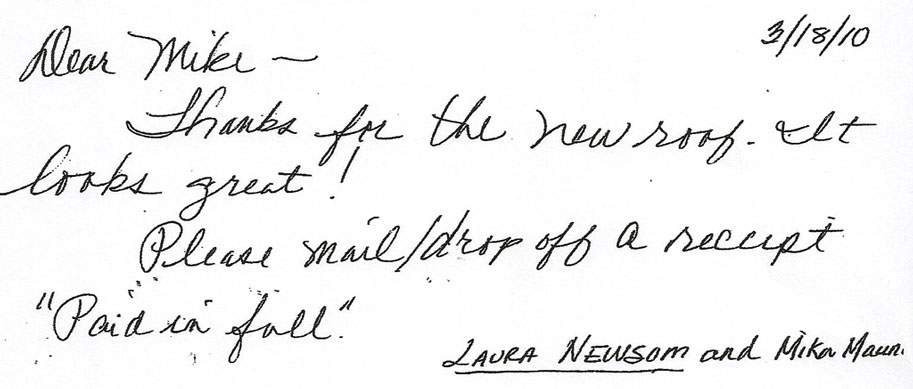 3/18/10
Dear Mike —
Thanks for the new roof. It
looks great!
Please mail/drop off a receipt
"Paid in full".
LAURA NEWSOM and Mike